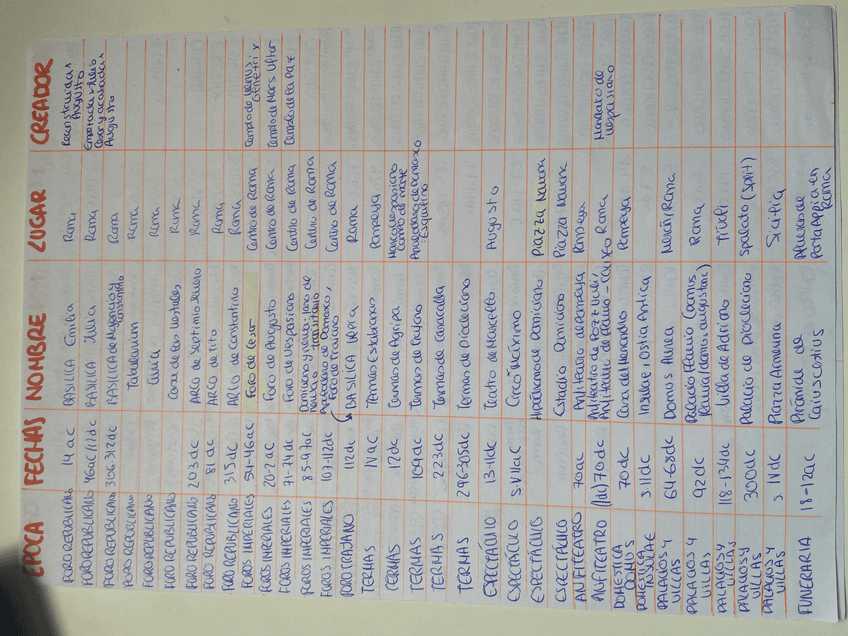 EPOCA FECHAS NOMBRE LUGAR CREADOR
FORO REPUBLICANO 14 ac BASILICA Emilia Roma Reconstruida x Augusto
FORO REPUBLICANO 46ac/12dc BASILICA Julia Roma Empezada x Julio Cesar y acabada x Augusto
FORO REPUBLICANO 306-312dc BASILICA de Majencio y Constantino Roma
FORO REPUBLICANO Tabularium Roma
FORO REPUBLICANO Curia Roma
FORO REPUBLICANO Casa de las Vestales Roma
FORO REPUBLICANO 203 dc ARCO de Septimio Severo Roma
FORO REPUBLICANO 81 dc ARCO de Tito Roma
FORO REPUBLICANO 315 dc ARCO de Constantino Roma
FOROS IMPERIALES 54-46ac Foro de Cesar Centro de Roma Templo de Venus Genetrix
FOROS IMPERIALES 20-2 ac Foro de Augusto Centro de Roma Templo de Mars Ultor
FOROS IMPERIALES 71-74 dc Foro de Vespasiano Centro de Roma Templo de la Paz
FOROS IMPERIALES 85-97dc Domiciano y Nerva: foro de Nerva o transitorio Centro de Roma
FOROS IMPERIALES 107-112dc Apolodoro de Damasco, Foro de Trajano Centro de Roma
FORO TRAJANO 112dc BASILICA Ulpia Roma
TERMAS IV aC Termas Estabianas Pompeya
TERMAS 12dc Termas de Agripa Marco Vespasiano Campo de Marte
TERMAS 109dc Termas de Trajano Apolodoro de Damasco Esquilino
TERMAS 223dc Termas de Caracalla
TERMAS 296-305dc Termas de Diocleciano
ESPECTÁCULO 13-11dc Teatro de Marcello Augusto
ESPECTÁCULO s.VIIaC Circo Máximo
ESPECTÁCULO Hipódromo de Domiciano Piazza Navona
ESPECTÁCULO Estadio Domiciano Piazza Navona
ANFITEATRO 70ac Anfiteatro de Pompeya Pompeya
ANFITEATRO 70dc Anfiteatro de Pozzuoli, Anfiteatro de Flavio - COLISEO Roma Mandato de Vespasiano
DOMESTICA DOMUS 70dc Casa del Menandro Pompeya
DOMESTICA INSULAE s.IIdc Insulae, Ostia Antica
PALACIOS Y VILLAS 64-68dc Domus Aurea Nerón/Roma
PALACIOS Y VILLAS 92dc Palacio Flavio (domus Flavia/domus augustana) Roma
PALACIOS Y VILLAS 118-134dc Villa de Adriano Tívoli
PALACIOS Y VILLAS 300dc Palacio de Diocleciano Spalato (Split)
PALACIOS Y VILLAS s. IV dc Piazza Armerina Sicilia
FUNERARIA 18-12ac Pirámide de Caius Cestius Afueras de Porta Appia en Roma